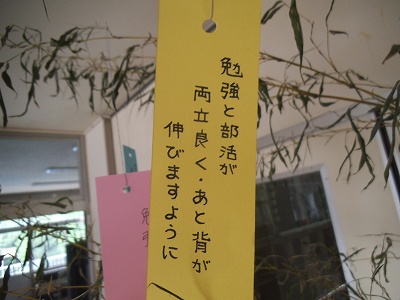 勉強と部活が
両立良く・あと背が
伸びますように
勉